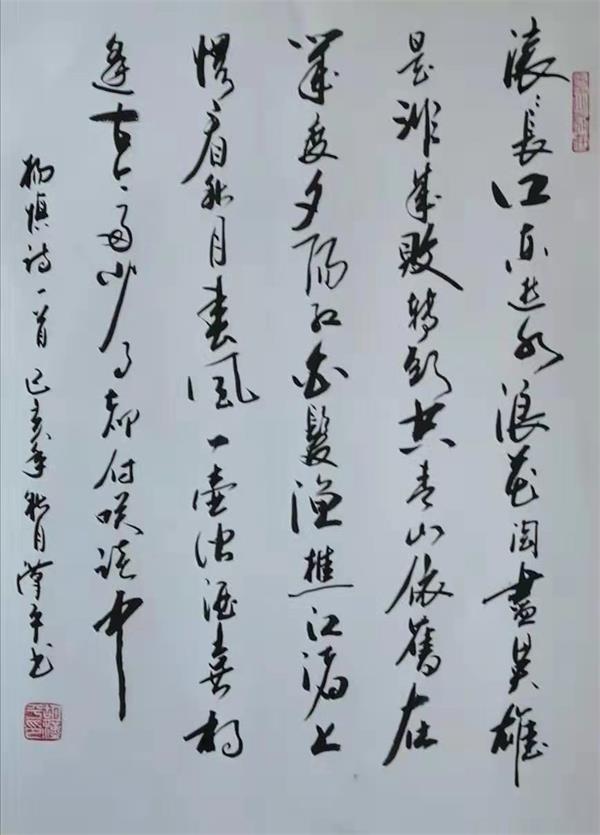 滚滚長江东逝水浪花淘盡英雄
是非成敗轉頭空青山依舊在
幾度夕陽红白髮渔樵江渚上
惯看秋月春風一壶浊酒喜相
逢古今多少事都付笑谈中
杨慎诗一首 己亥年秋月 平书